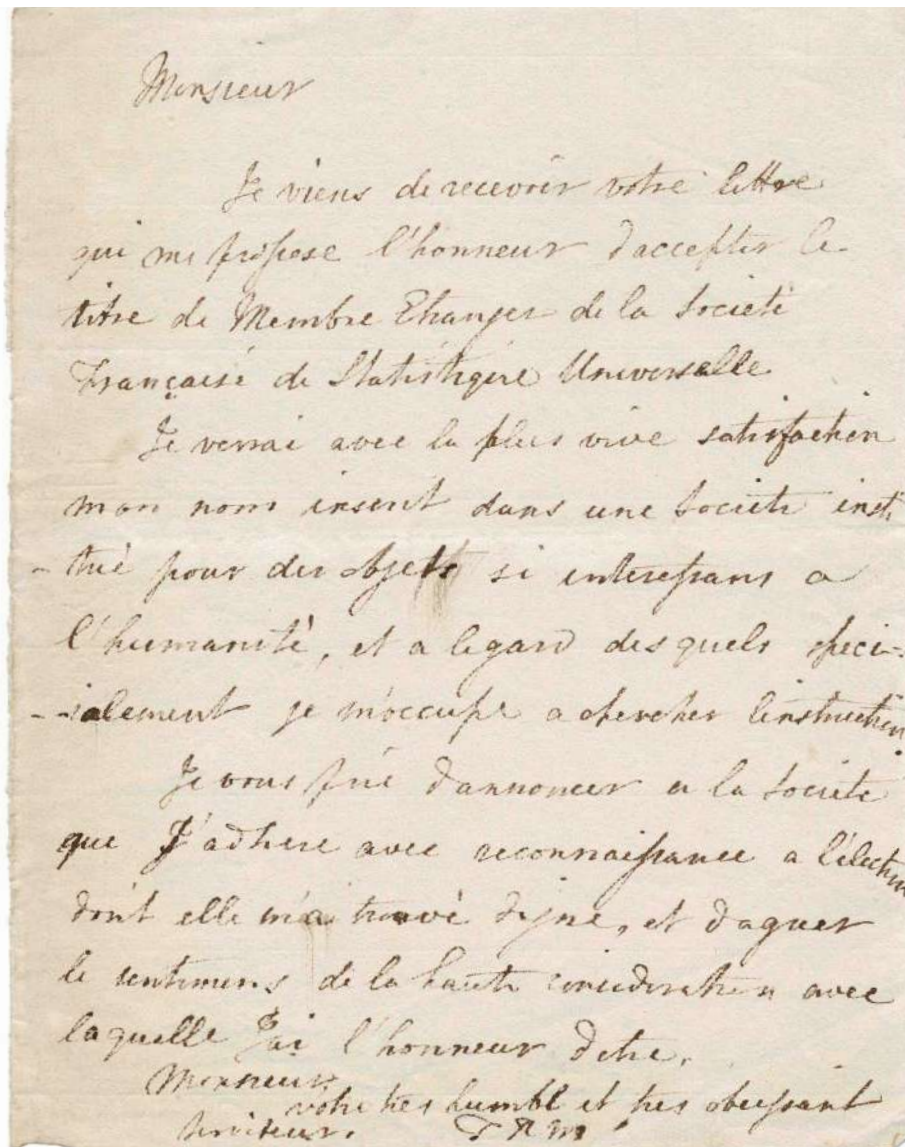 Monsieur
Je viens de recevoir votre lettre
qui me propose l'honneur d'accepter le
titre de Membre Etranger de la Societé
Française de Statistique Universelle
Je verrai avec la plus vive satisfaction
mon nom inscrit dans une Societé insti
-tué pour des objets si interessans a
l'humanité, et a legard des quels speci-
-ialement je m'occupe a chercher linstruction
Je vous prie d'annoncer a la Societé
que J'adhere avec reconnaissance a l'élection
dont elle m'a trouvé digne, et dagreer
le sentimens de la haute consideration avec
laquelle J'ai l'honneur detre,
Monsieur
votre tres humbl et tres obeissant
Serviteur.